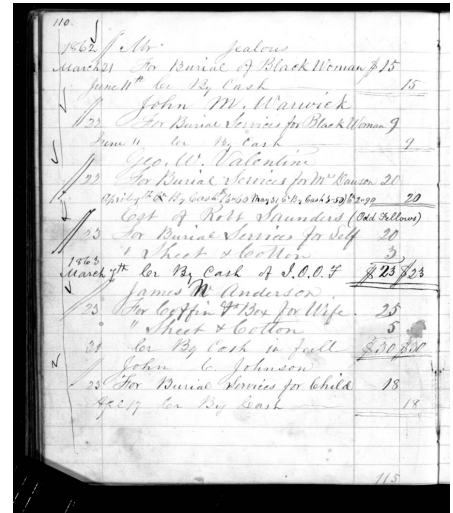 110.
1862 // Mr. Jealous
March 21 For Burial of Black Woman $15
June 11th Cr By Cash 15
// John M. Warwick
" 23 For Burial Services for Black Woman 9
June 11 Cr By Cash 9
// Geo. W. Valentine
" 23 For Burial Services for Mr Dawson 20
April 9th Cr By Cash May 31 By Cash 20
// Est of Robt Saunders (Odd Fellows)
" 23 For Burial Services for Self 20
" Sheet & Cotton 3
1863
March 7th Cr By Cash of I.O.O.F $23 $23
James W Anderson
" 23 For Coffin & Box for Wife 25
" Sheet & Cotton 5
28 Cr By Cash in full $30 $30
// John C. Johnson
23 For Burial Services for Child 18
Cr By Cash 18
115